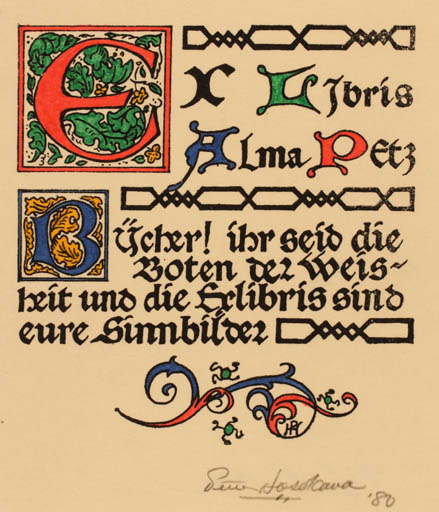 Ex Libris
Alma Petz
Bücher! ihr seid die
Boten der Weis~
heit und die Exlibris sind
eure Sinnbilder
Hosokawa '80